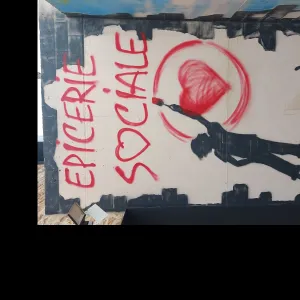 EPICERIE
SOCIALE